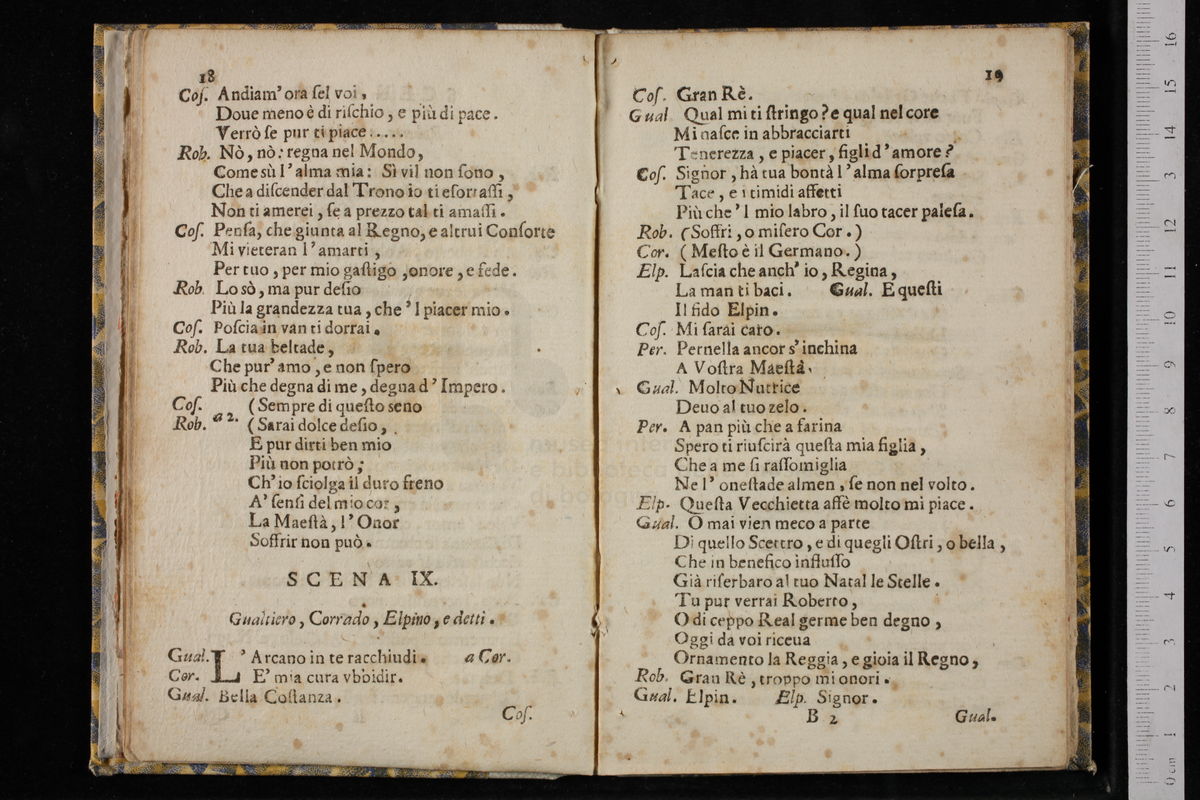 18
Coſ. Andiam' ora ſel voi,
Doue meno è di riſchio, e più di pace.
Verrò ſe pur ti piace.....
Rob. Nò, nò: regna nel Mondo,
Come sù l'alma mia: Sì vil non ſono,
Che a diſcender dal Trono io ti eſortaſſi,
Non ti amerei, ſe a prezzo tal ti amaſſi.
Coſ. Penſa, che giunta al Regno, e altrui Conſorte
Mi vieteran l'amarti,
Per tuo, per mio gaſtigo, onore, e fede.
Rob. Lo sò, ma pur deſio
Più la grandezza tua, che 'l piacer mio.
Coſ. Poſcia in van ti dorrai.
Rob. La tua beltade,
Che pur' amo, e non ſpero
Più che degna di me, degna d'Impero.
Coſ. (Sempre di queſto seno
Rob. a 2. (Sarai dolce deſio,
E pur dirti ben mio
Più non potrò;
Ch' io ſciolga il duro freno
A' ſenſi del mio cor,
La Maeſtà, l'Onor
Soffrir non può.
SCENA IX.
Gualtiero, Corrado, Elpino, e detti.
Gual. L'Arcano in te racchiudi. a Cor.
Cor. E' mia cura vbbidir.
Gual. Bella Coſtanza.
Coſ.
19
Coſ. Gran Rè.
Gual. Qual mi ti ſtringo? e qual nel core
Mi naſce in abbracciarti
Tenerezza, e piacer, figli d'amore?
Coſ. Signor, hà tua bontà l'alma ſorpreſa
Tace, e i timidi affetti
Più che 'l mio labro, il ſuo tacer paleſa.
Rob. (Soffri, o miſero Cor.)
Cor. (Meſto è il Germano.)
Elp. Laſcia che anch' io, Regina,
La man ti baci. Gual. E queſti
Il fido Elpin.
Coſ. Mi ſarai caro.
Per. Pernella ancor s'inchina
A Voſtra Maeſtà.
Gual. Molto Nutrice
Deuo al tuo zelo.
Per. A pan più che a farina
Spero ti riuſcirà queſta mia figlia,
Che a me ſi raſſomiglia
Ne l'oneſtade almen, ſe non nel volto.
Elp. Queſta Vecchietta affè molto mi piace.
Gual. O mai vien meco a parte
Di quello Scettro, e di quegli Oſtri, o bella,
Che in benefico influſſo
Già riſerbaro al tuo Natal le Stelle.
Tu pur verrai Roberto,
O di ceppo Real germe ben degno,
Oggi da voi riceua
Ornamento la Reggia, e gioia il Regno,
Rob. Gran Rè, troppo mi onori.
Gual. Elpin. Elp. Signor.
B 2 Gual.